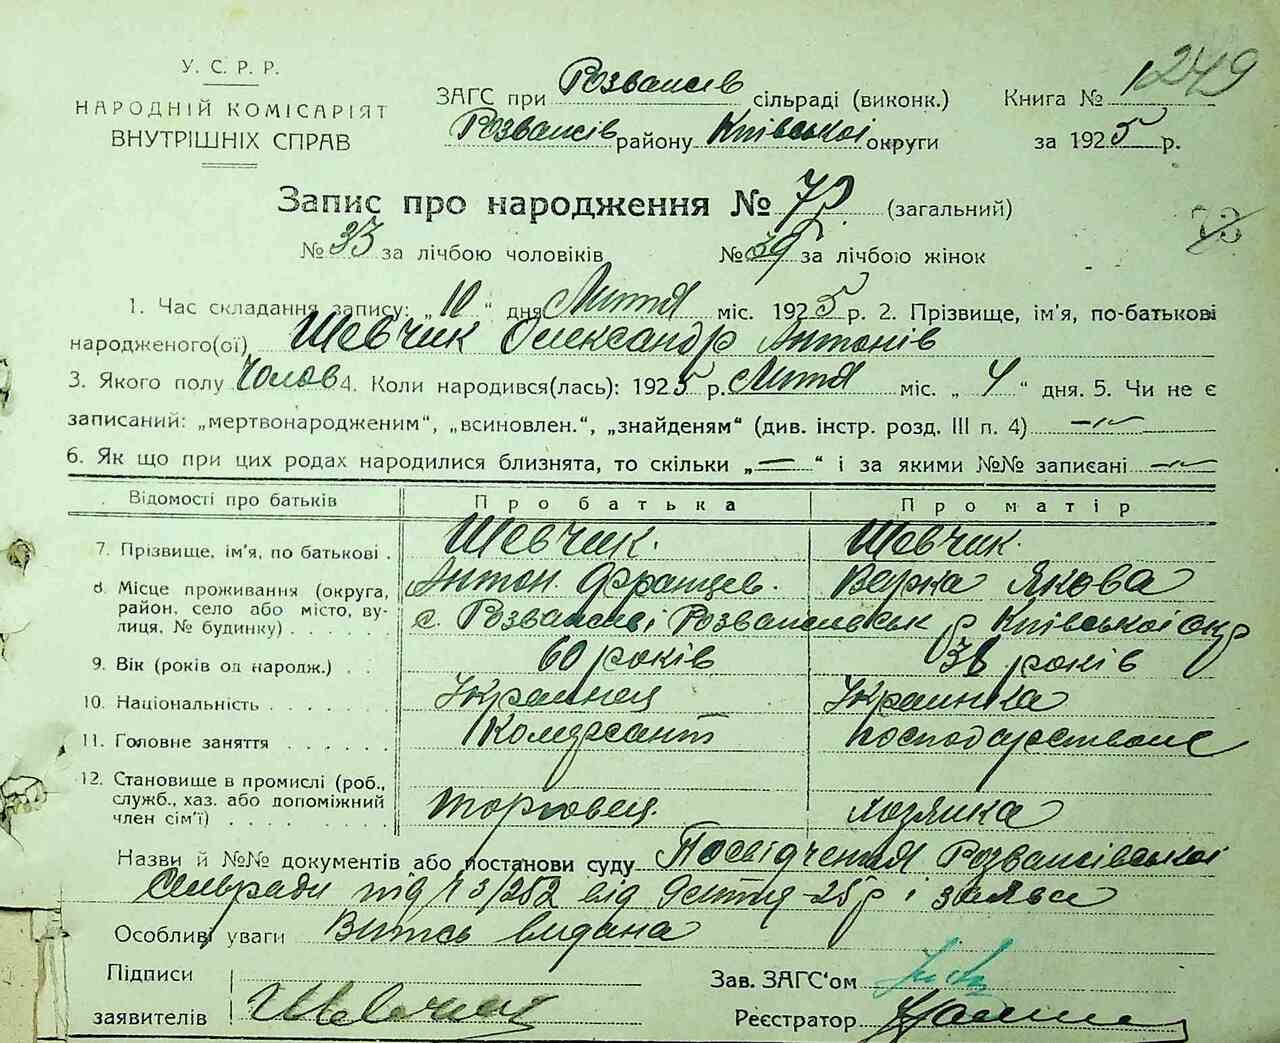 У. С. Р. Р.
НАРОДНІЙ КОМІСАРІЯТ
ВНУТРІШНІХ СПРАВ
ЗАГС при Розважів сільраді (виконк.)
Розважів району Київської округи
Книга № 1 249
за 1925 р.
Запис про народження № 72 (загальний)
73
№ 33 за лічбою чоловіків № 39 за лічбою жінок
1. Час складання запису: „10" дня Лютня міс. 1925 р. 2. Прізвище, ім'я, по-батькові
народженого(ої) Шевчик Олександр Антонів
3. Якого полу Чолов 4. Коли народився(лась): 1925 р. Лютня міс. „4" дня. 5. Чи не є
записаний: „мертвонародженим", „всиновлен.", „знайденям" (див. інстр. розд. III п. 4) —"—
6. Як що при цих родах народилися близнята, то скільки „—" і за якими №№ записані —"—
Відомості про батьків Про батька Про матір
7. Прізвище, ім'я, по батькові . Шевчик. Шевчик.
Антон Францев. Верка Якова
8. Місце проживання (округа,
район, село або місто, ву-
лиця, № будинку) . . . . . с. Розважеві Розважевськ р Київської окр
9. Вік (років од народж.) . . 60 років 38 років
10. Національність . . . . . . . Украинец Украинка
11. Головне заняття . . . . . . Комерсант господарстване
12. Становище в промислі (роб.,
служб., хаз. або допоміжний
член сім'ї) . . . . . . . . . торговец. хозяйка
Назви й №№ документів або постанови суду Посвідчення Розважівської
Сільради під 13/252 від 9 лютня 25 р і заява
Особливі уваги Витсь видана
Підписи
заявителів Шевчик
Зав. ЗАГС'ом
Реєстратор